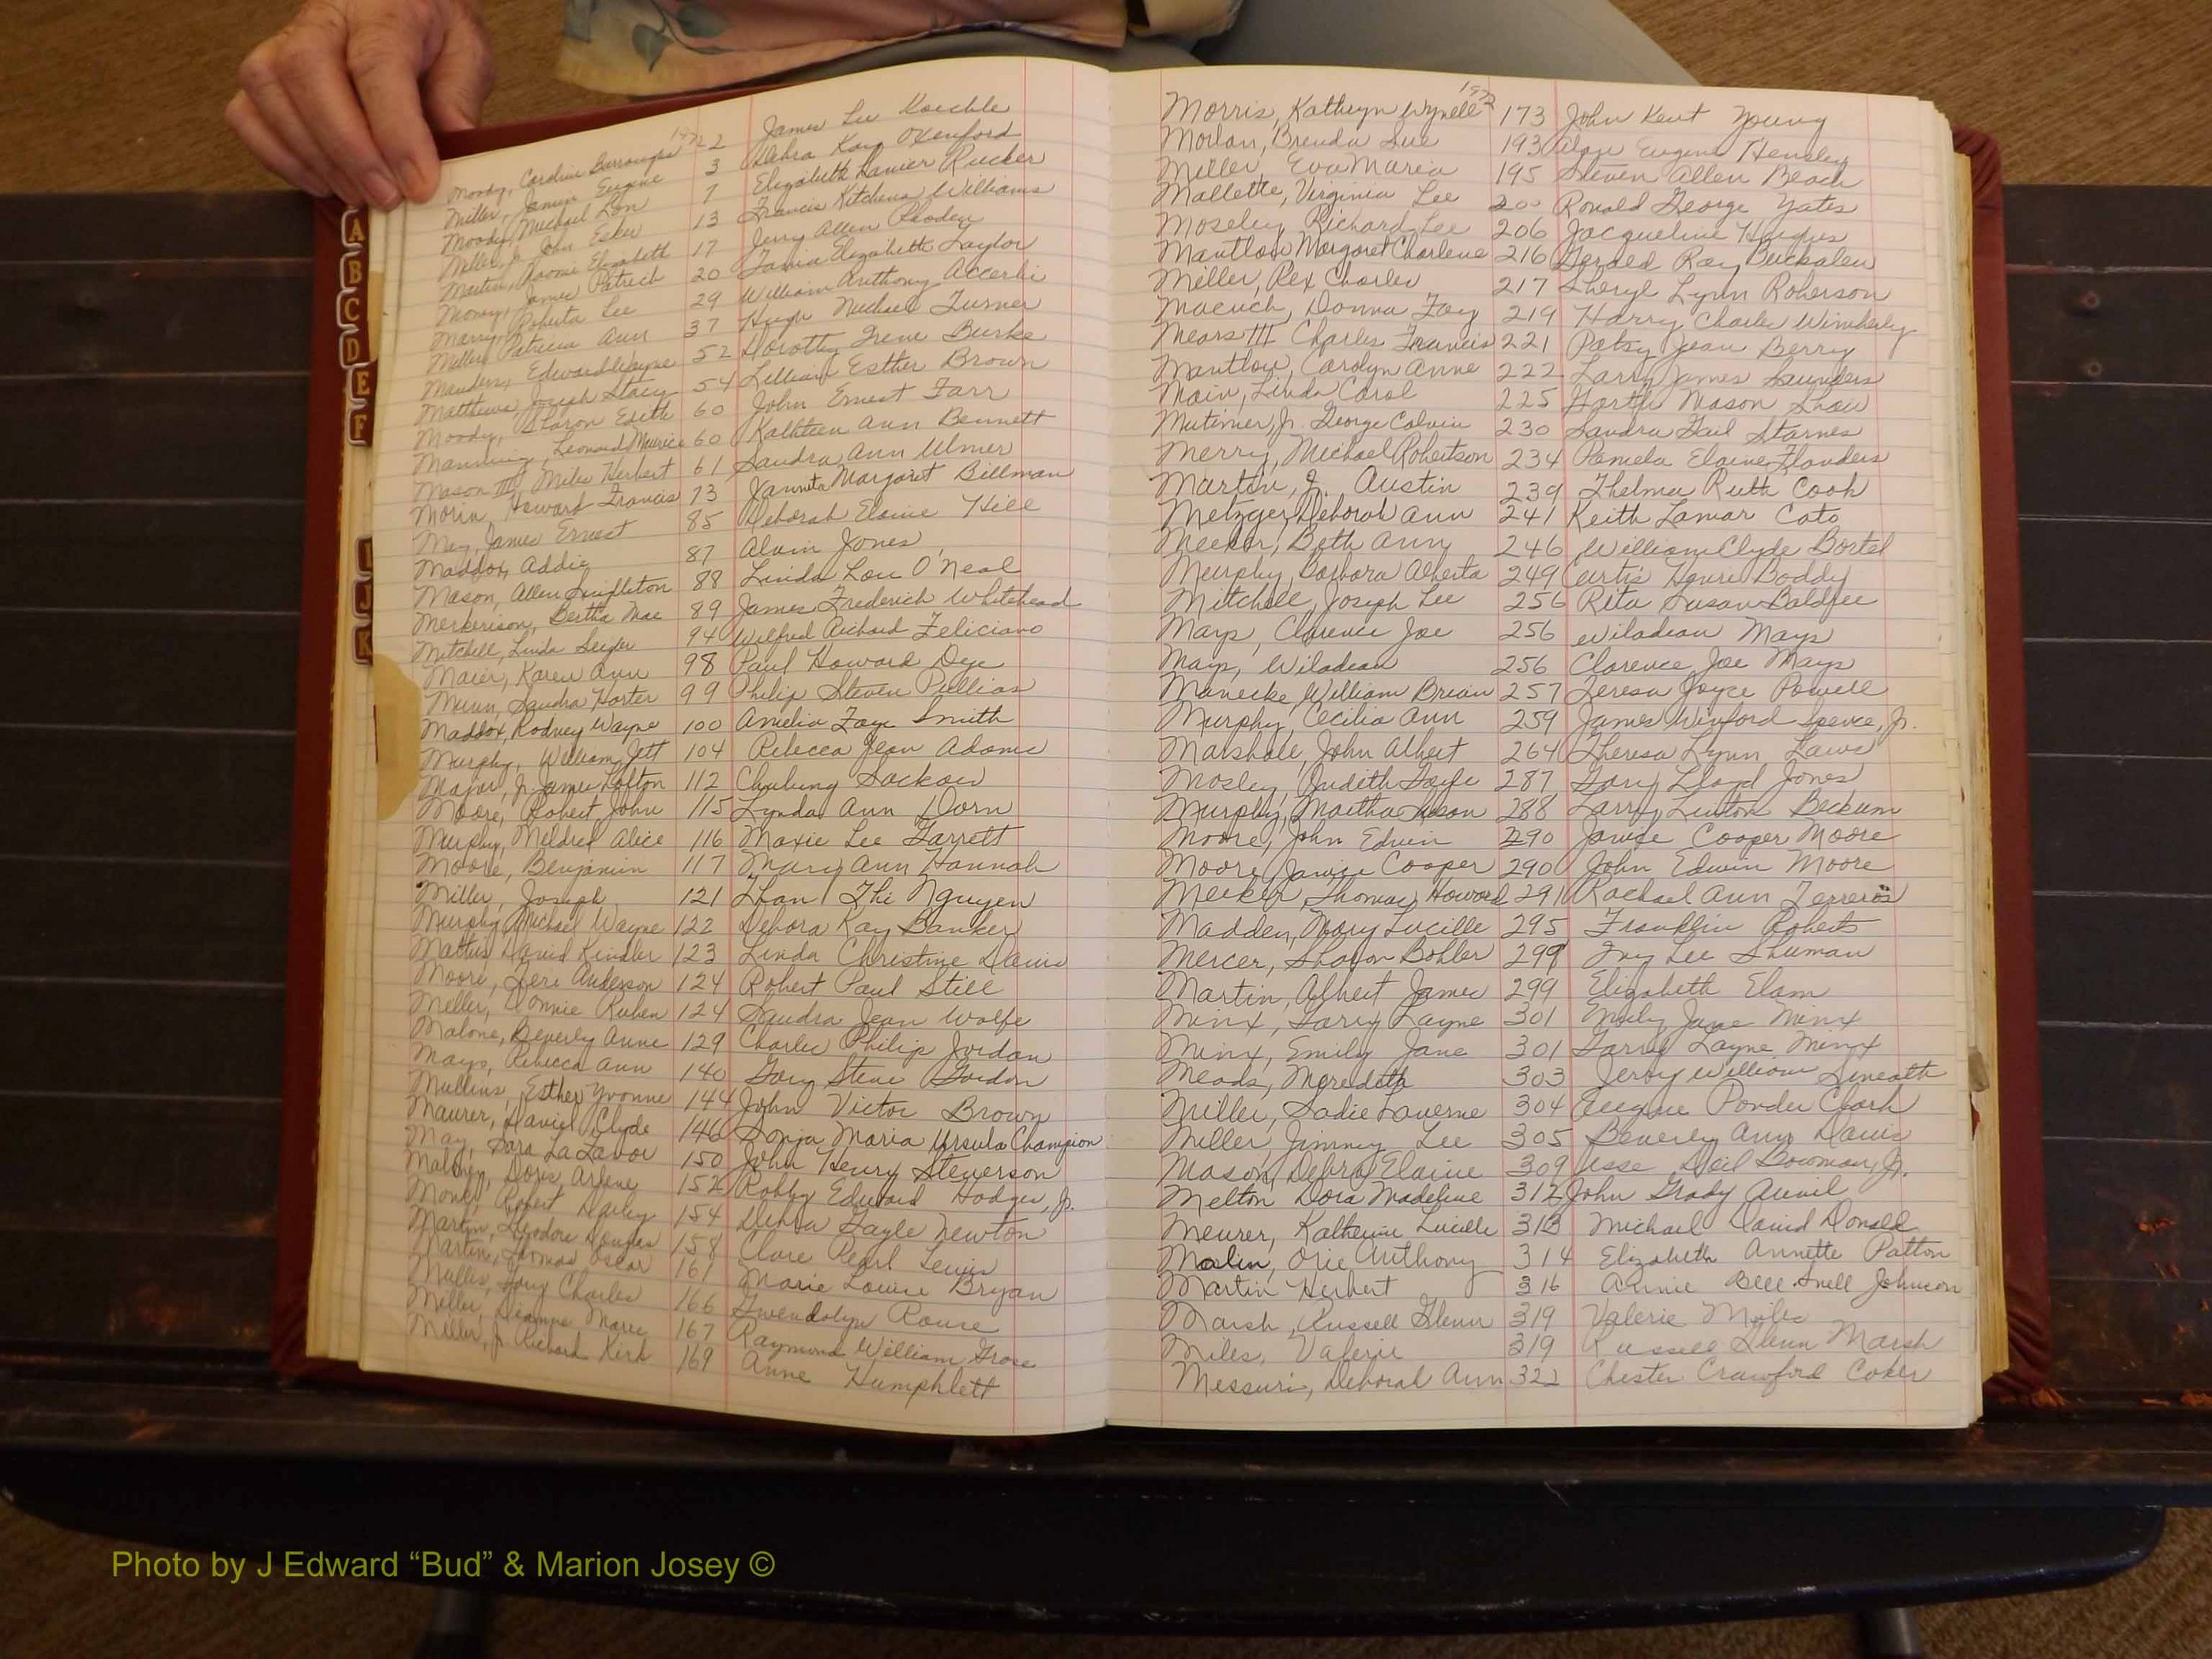 A
B
C
D
E
F
I
J
K
1972
Moody, Caroline Burroughs 2 James Lee Koechle
Miller, James Eugene 3 Debra Kay Oxenford
Moody, Michael Lon 7 Elizabeth Lanier Rucker
Miller, Jr. John Esker 13 Francis Kitchens Williams
Martin, Naomi Elizabeth 17 Jerry Allen Rhoden
James Patrick 20 Elizabeth Taylor
Roberta Lee 29 William Anthony
Miller, Patricia Ann 37 Hugh Michael Turner
Edward Wayne 52 Dorothy Irene Burke
Matthews, Joseph Stacy 54 Lillian Esther Brown
Moody, Sharon Edith 60 John Ernest Farr
Manning, Leonard Maurice 60 Kathleen Ann Bennett
Mason III, Miles Herbert 61 Sandra Ann Ulmer
Morin, Howard Francis 73 Margaret Billman
May, James Ernest 85 Deborah Elaine Hill
Maddox, Addie 87 Alvin Jones
Mason, Allen Singleton 88 Linda Lou O'Neal
Merkerison, Bertha Mae 89 James Frederich Whitehead
Mitchell, Linda Seigler 94 Wilfred Richard Feliciano
Maier, Karen Ann 98 Paul Howard Dye
Munn, Sandra Harter 99 Philip Steven Pullias
Maddox, Rodney Wayne 100 Amelia Faye Smith
Murphy, William Jett 104 Rebecca Jean Adams
Major, Jr. James Lofton 112
Moore, Robert John 115 Lynda Ann Dorn
Murphy, Mildred Alice 116 Maxie Lee Garrett
Moore, Benjamin 117 Mary Ann Hannah
Miller, Joseph 121 Thi Nguyen
Murphy, Michael Wayne 122 Debora Kay Banker
David Kindler 123 Linda Christine Davis
Moore, Teri Anderson 124 Robert Paul Still
Miller, Donnie Ruben 124 Sandra Jean Wolfe
Malone, Beverly Anne 129 Charles Philip Jordan
Mays, Rebecca Ann 140 Gary Steve Gordon
Mullins, Esther Yvonne 144 John Victor Brown
Maurer, Daniel Clyde 146 Sonja Maria Ursula Champion
May, Sara 150 John Henry Steverson
Doris Arlene 152 Robby Edward Hodges, Jr.
Robert 154 Debra Gayle Newton
Martin, Theodore Douglas 158 Clare Pearl Lewis
Martin, Thomas Oscar 161 Marie Louise Bryan
Mullis, Charles 166 Gwendolyn Rouse
Miller, Dianne Marie 167 Raymond William Grose
Miller, Jr. Richard Kirk 169 Anne Humphlett
1972
Morris, Kathryn Wynell 173 John Kent Young
Brenda Sue 193 Eugene Hensley
Miller, Eva Maria 195 Steven Allen Beach
Mallette, Virginia Lee 200 Ronald George Yates
Moseley, Richard Lee 206 Jacqueline
Mantlow, Margaret Charlene 216 Gerald Ray Buckalew
Miller, Rex Charles 217 Sheryl Lynn Roberson
Macuch, Donna Fay 219 Harry Charles Wimberly
Mears III Charles Francis 221 Patsy Jean Berry
Mantlow, Carolyn Anne 222 Larry James Saunders
Main, Linda Carol 225 Garth Mason Snow
Mutimer, Jr. George Calvin 230 Sandra Gail Starnes
Merry, Michael Robertson 234 Pamela Elaine Flanders
Martin, J. Austin 239 Thelma Ruth Cook
Metzger, Deborah Ann 241 Keith Lamar Cato
Meeker, Beth Ann 246 William Clyde Bortel
Murphy, Barbara Alberta 249 Curtis Henri Boddy
Mitchell, Joseph Lee 256 Rita Susan
Mays, Clarence Joe 256 Wiladean Mays
Mays, Wiladean 256 Clarence Joe Mays
Manecke, William Brian 257 Teresa Joyce Powell
Murphy, Cecilia Ann 259 James Winford Spence, Jr.
Marshall, John Albert 264 Theresa Lynn Laws
Mosley, Judith Gayle 287 Gary Lloyd Jones
Murphy, Martha Susan 288 Larry Linton Beckum
Moore, John Edwin 290 Janice Cooper Moore
Moore, Janice Cooper 290 John Edwin Moore
Meeker, Thomas Howard 291 Rachael Ann Terreros
Madden, Mary Lucille 295 Franklin Roberts
Mercer, Sharon Bohler 299 Ivy Lee Shuman
Martin, Albert James 299 Elizabeth Elam
Minx, Garry Layne 301 Emily Jane Minx
Minx, Emily Jane 301 Garry Layne Minx
Meads, Meredith 303 Jerry William Sineath
Miller, Sadie Laverne 304 Eugene Ponder Clark
Miller, Jimmy Lee 305 Beverly Ann Davis
Mason, Debra Elaine 309 Jesse Neil Bowman, Jr.
Melton Dora Madeline 312 John Grady Auvil
Meurer, Katherine Lucille 313 Michael David Donald
Marlin, Orie Anthony 314 Elizabeth Annette Patton
Martin Herbert 316 Annie Bell Snell Johnson
Marsh, Russell Glenn 319 Valerie Miles
Miles, Valerie 319 Russell Glenn Marsh
Messuri, Deborah Ann 322 Chester Crawford Coker
Photo by J Edward “Bud” & Marion Josey ©